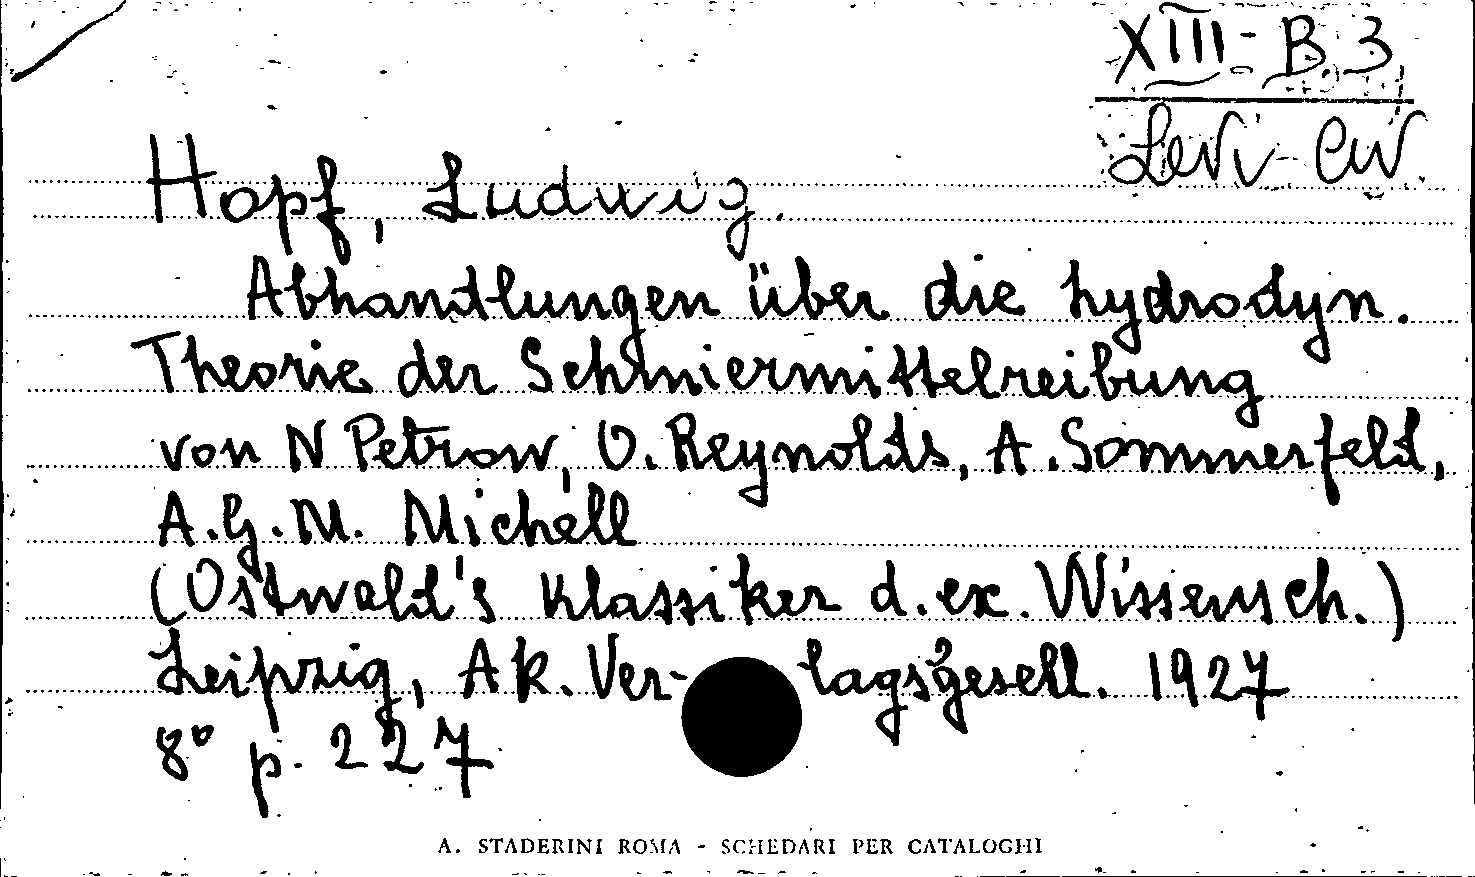 XIII - B. 3
Levi-Civ.
Hopf, Ludwig.
Abhandlungen über die hydrodyn.
Theorie der Schmiermittelreibung
von N Petrow, O. Reynolds, A. Sommerfeld,
A.G.M. Michell
(Ostwald's Klassiker d. ex. Wissensch.)
Leipzig, Ak. Ver- lagsgesell. 1927
8° p. 227
A. STADERINI ROMA - SCHEDARI PER CATALOGHI